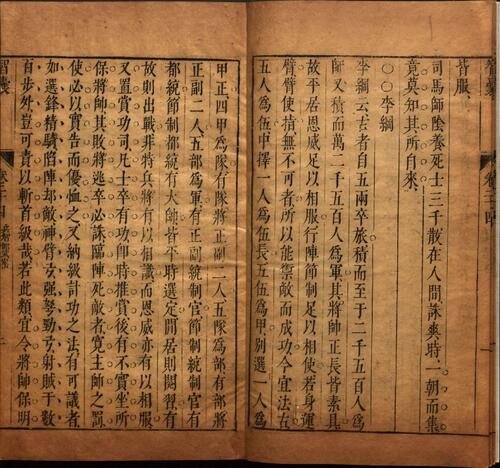 智囊
卷二十四
皆服
司馬師陰養死士三千散在人間誅爽時一朝而集
竟莫知其所自來
○○李綱
李綱云古者自五兩卒旅積而至于二千五百人為
師又積而萬二千五百人為軍其將帥正長皆素具
故平居恩威足以相服行陣節制足以相使若身運
臂臂使指無不可者所以能禦敵而成功今宜法古
五人為伍中擇一人為伍長五伍為甲別選一人為
甲正四甲為隊有隊將正副二人五隊為部有部將
正副二人五部為軍有正副統制官節制統制官有
都統節制都統有大帥皆平時選定閒居則閱習有
故則出戰非特兵將有以相識而恩威亦有以相服
又置賞功司凡士卒有功卽時推賞後有不實坐所
保將帥其敗將逃卒必誅臨陣死敵者寬主帥之罰
使必以實告而優恤之又納級計功之法有可議者
如選鋒精騎陷陣却敵神臂弓強弩勁弓射賊于數
百步外豈可責以斬首級哉若此類宜令將帥保明
智囊
卷二十四